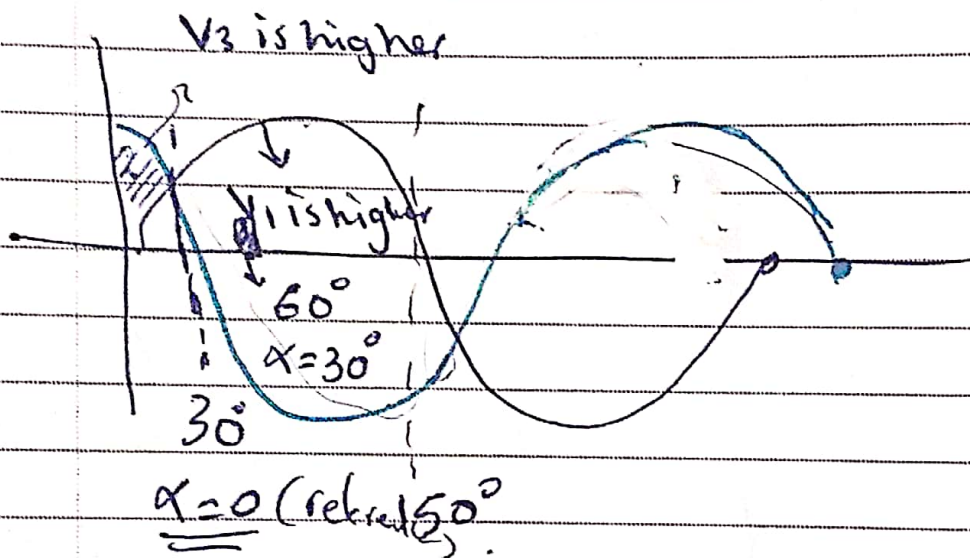 V3 is higher
V1 is higher
60°
α=30°
30°
α=0 (
50°